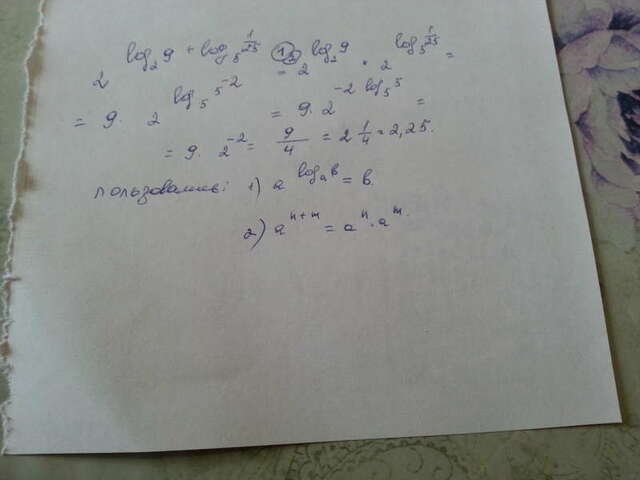 2^(log₂9 + log₅ 1/25) = 2^(log₂9) · 2^(log₅ 1/25) =
= 9 · 2^(log₅ 5⁻²) = 9 · 2^(-2 log₅ 5) =
= 9 · 2⁻² = 9/4 = 2 1/4 = 2,25.
пользовались: 1) a^(logₐb) = b.
2) a^(n+m) = aⁿ · aᵐ.